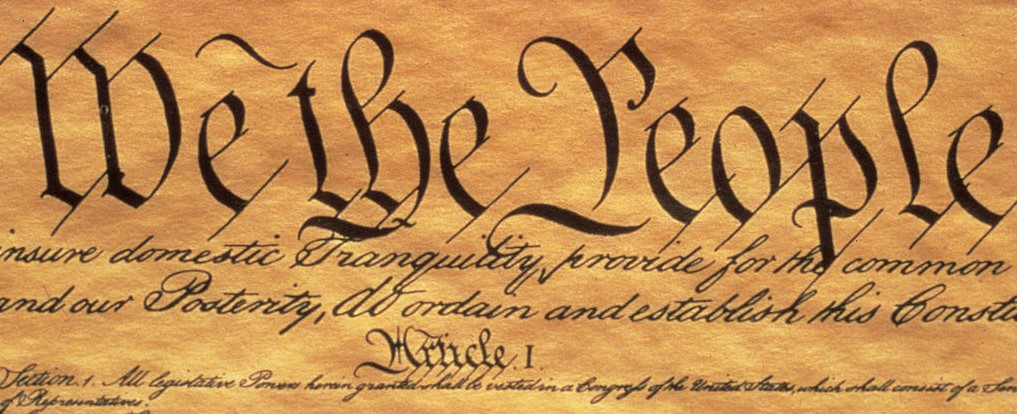 We the People
insure domestic Tranquility, provide for the common
and our Posterity, do ordain and establish this Const
Article. I.
Section. 1. All legislative Powers herein granted shall be vested in a Congress of the United States, which shall consist of a Sen
of Representatives.